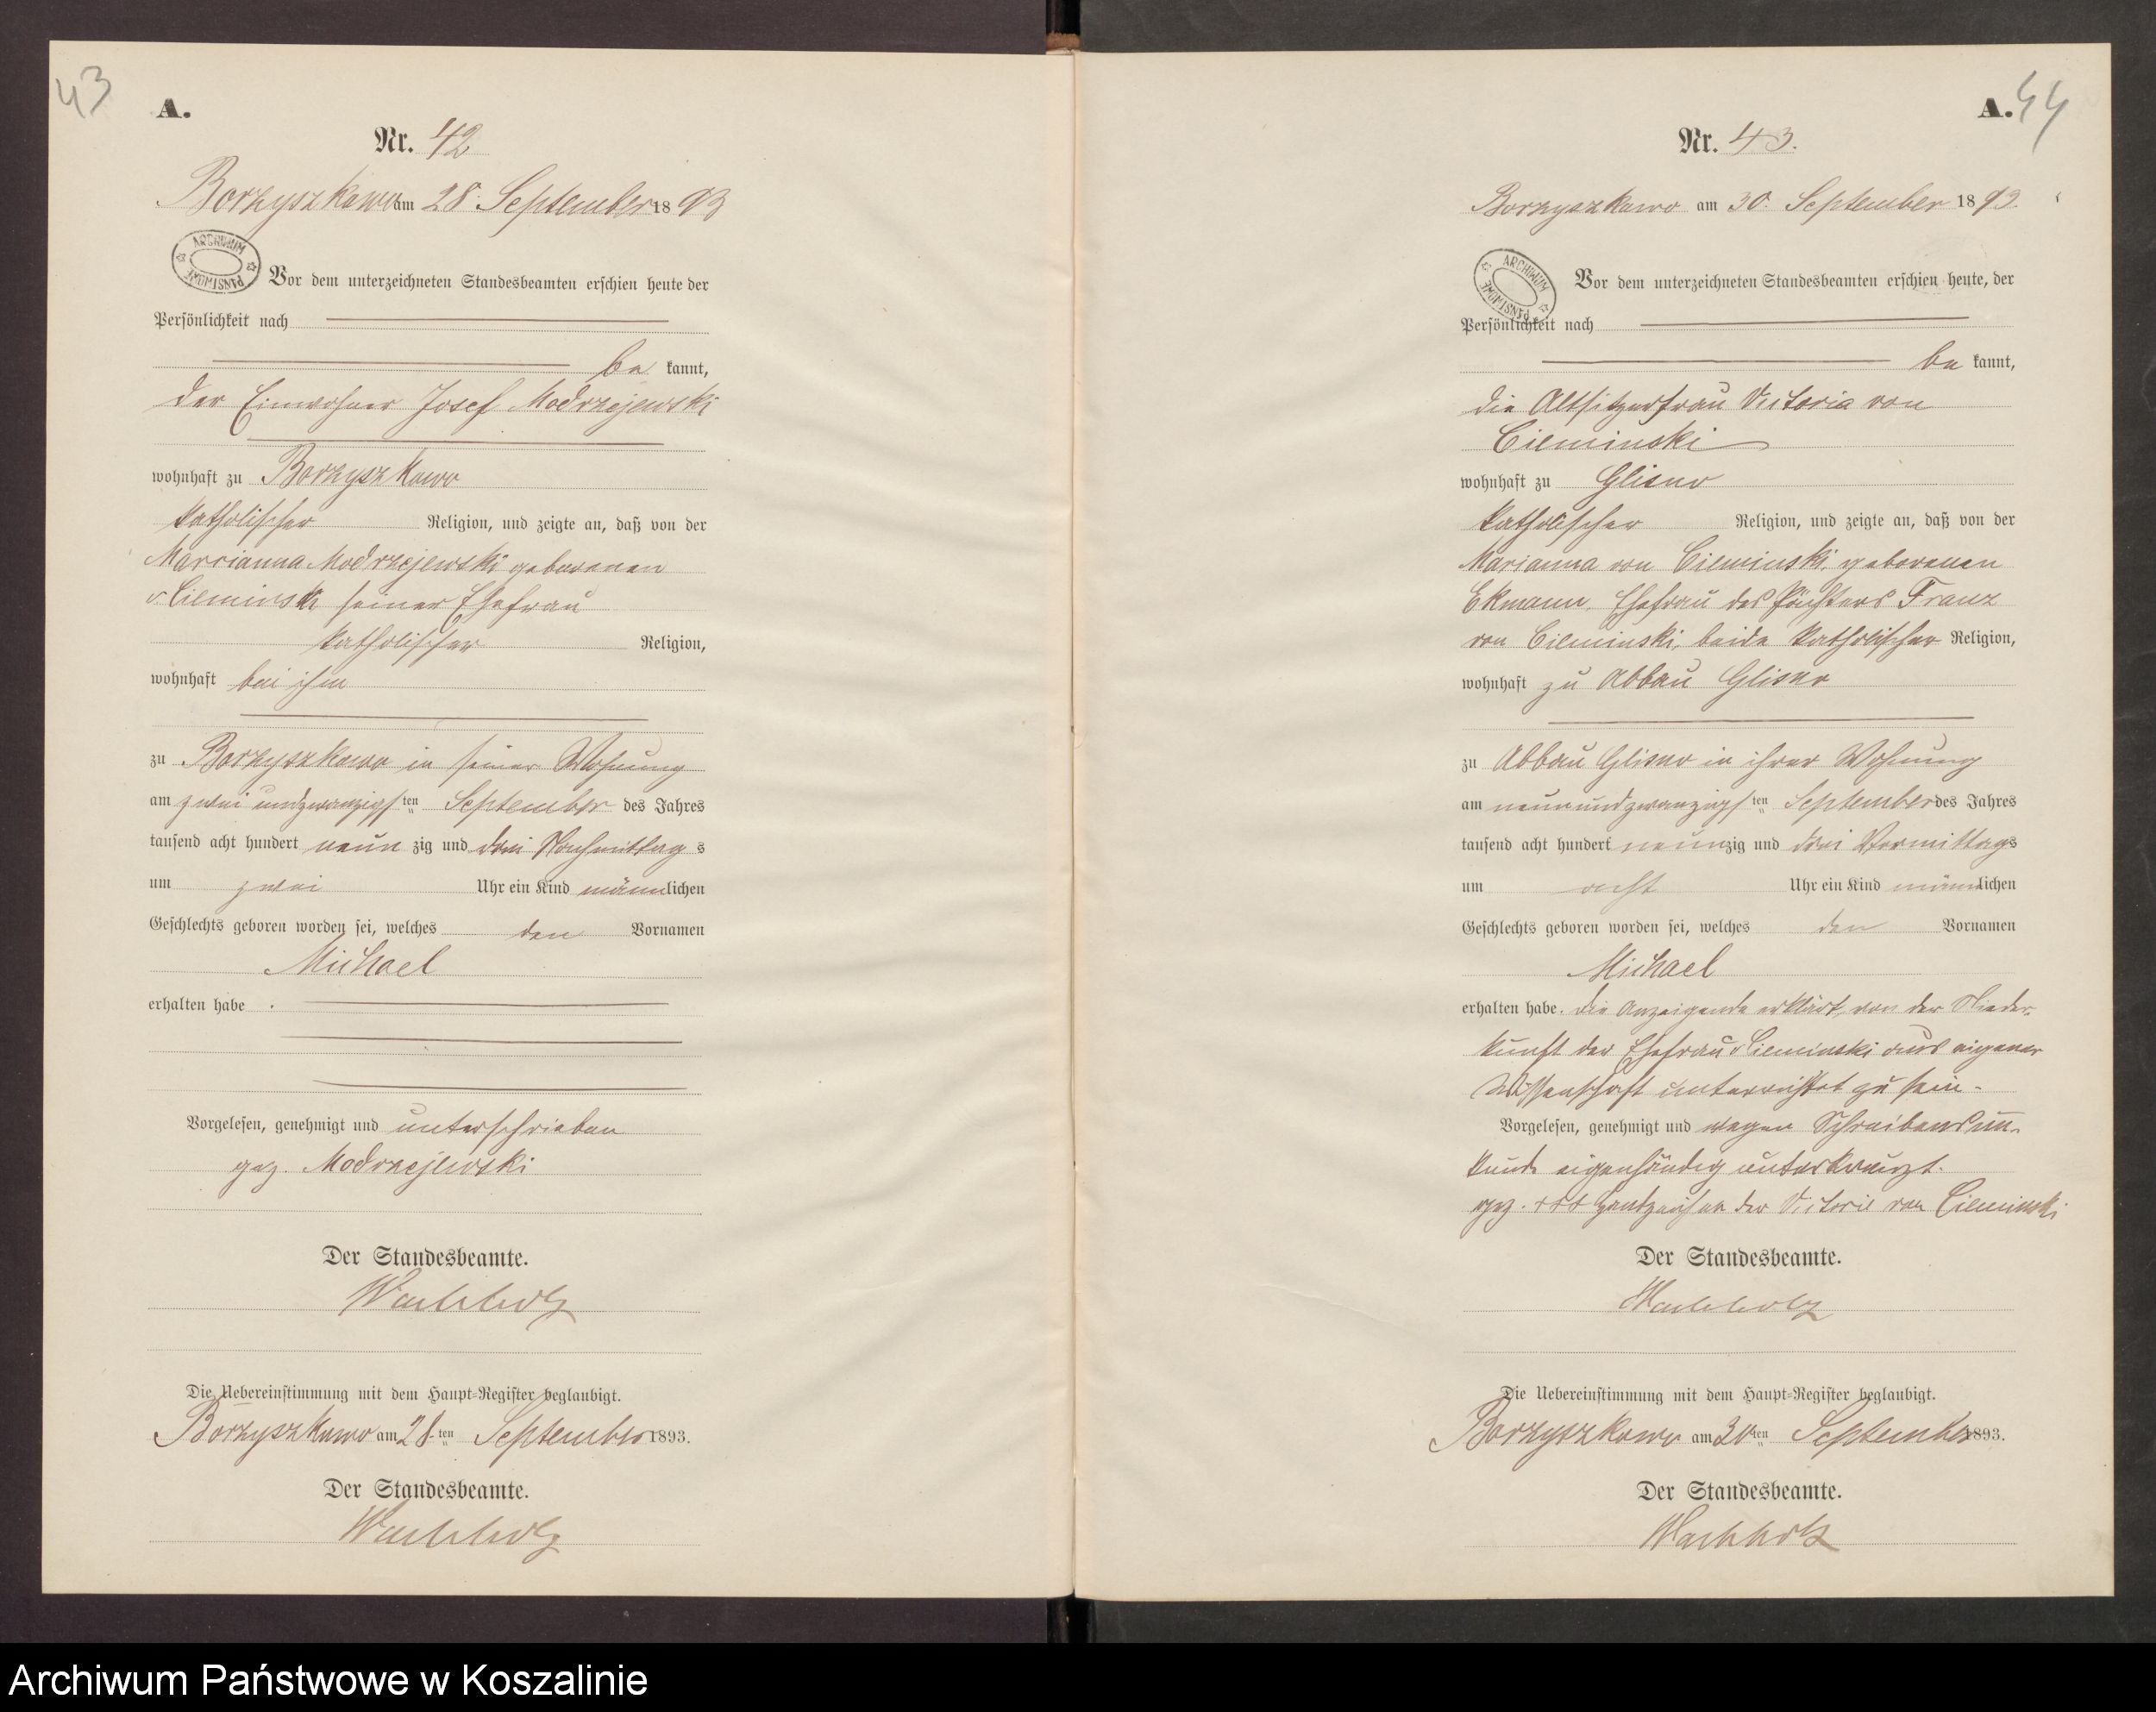 43
A.
Nr. 42
Borzyszkowo am 28. September 1893
ARCHIWUM PAŃSTWOWE
Vor dem unterzeichneten Standesbeamten erschien heute der
Persönlichkeit nach
be kannt,
der Einwohner Josef Modrzejewski
wohnhaft zu Borzyszkowo
katholischer Religion, und zeigte an, daß von der
Marcianna Modrzejewski geborenen
v. Cieminski seiner Ehefrau
katholischer Religion,
wohnhaft bei ihm
zu Borzyszkowo in seiner Wohnung
am zwei undzwanzigsten September des Jahres
tausend acht hundert neun zig und drei Nachmittag s
um zwei Uhr ein Kind männlichen
Geschlechts geboren worden sei, welches den Vornamen
Michael
erhalten habe .
Vorgelesen, genehmigt und unterschrieben
gez. Modrzejewski
Der Standesbeamte.
Wachholz
Die Uebereinstimmung mit dem Haupt-Register beglaubigt.
Borzyszkowo am 28ten September 1893.
Der Standesbeamte.
Wachholz
A. 44
Nr. 43.
Borzyszkowo am 30. September 1893.
ARCHIWUM PAŃSTWOWE
Vor dem unterzeichneten Standesbeamten erschien heute, der
Persönlichkeit nach
be kannt,
die Altsitzerfrau Victoria von
Cieminski
wohnhaft zu Glisno
katholischer Religion, und zeigte an, daß von der
Marianna von Cieminski, geborenen
Ekmann, Ehefrau des Pächters Franz
von Cieminski, beide katholischer Religion,
wohnhaft zu Abbau Glisno
zu Abbau Glisno in ihrer Wohnung
am neunundzwanzigsten September des Jahres
tausend acht hundert neunzig und drei Vormittags
um acht Uhr ein Kind männlichen
Geschlechts geboren worden sei, welches den Vornamen
Michael
erhalten habe. Die Anzeigende erklärt, von der Nieder-
kunft der Ehefrau v Cieminski aus eigener
Wissenschaft unterrichtet zu sein.
Vorgelesen, genehmigt und wegen Schreibensun-
kunde eigenhändig unterkreuzt.
gez. +++ Handzeichen der Victorie von Cieminski
Der Standesbeamte.
Wachholz
Die Uebereinstimmung mit dem Haupt-Register beglaubigt.
Borzyszkowo am 30ten September 1893.
Der Standesbeamte.
Wachholz
Archiwum Państwowe w Koszalinie